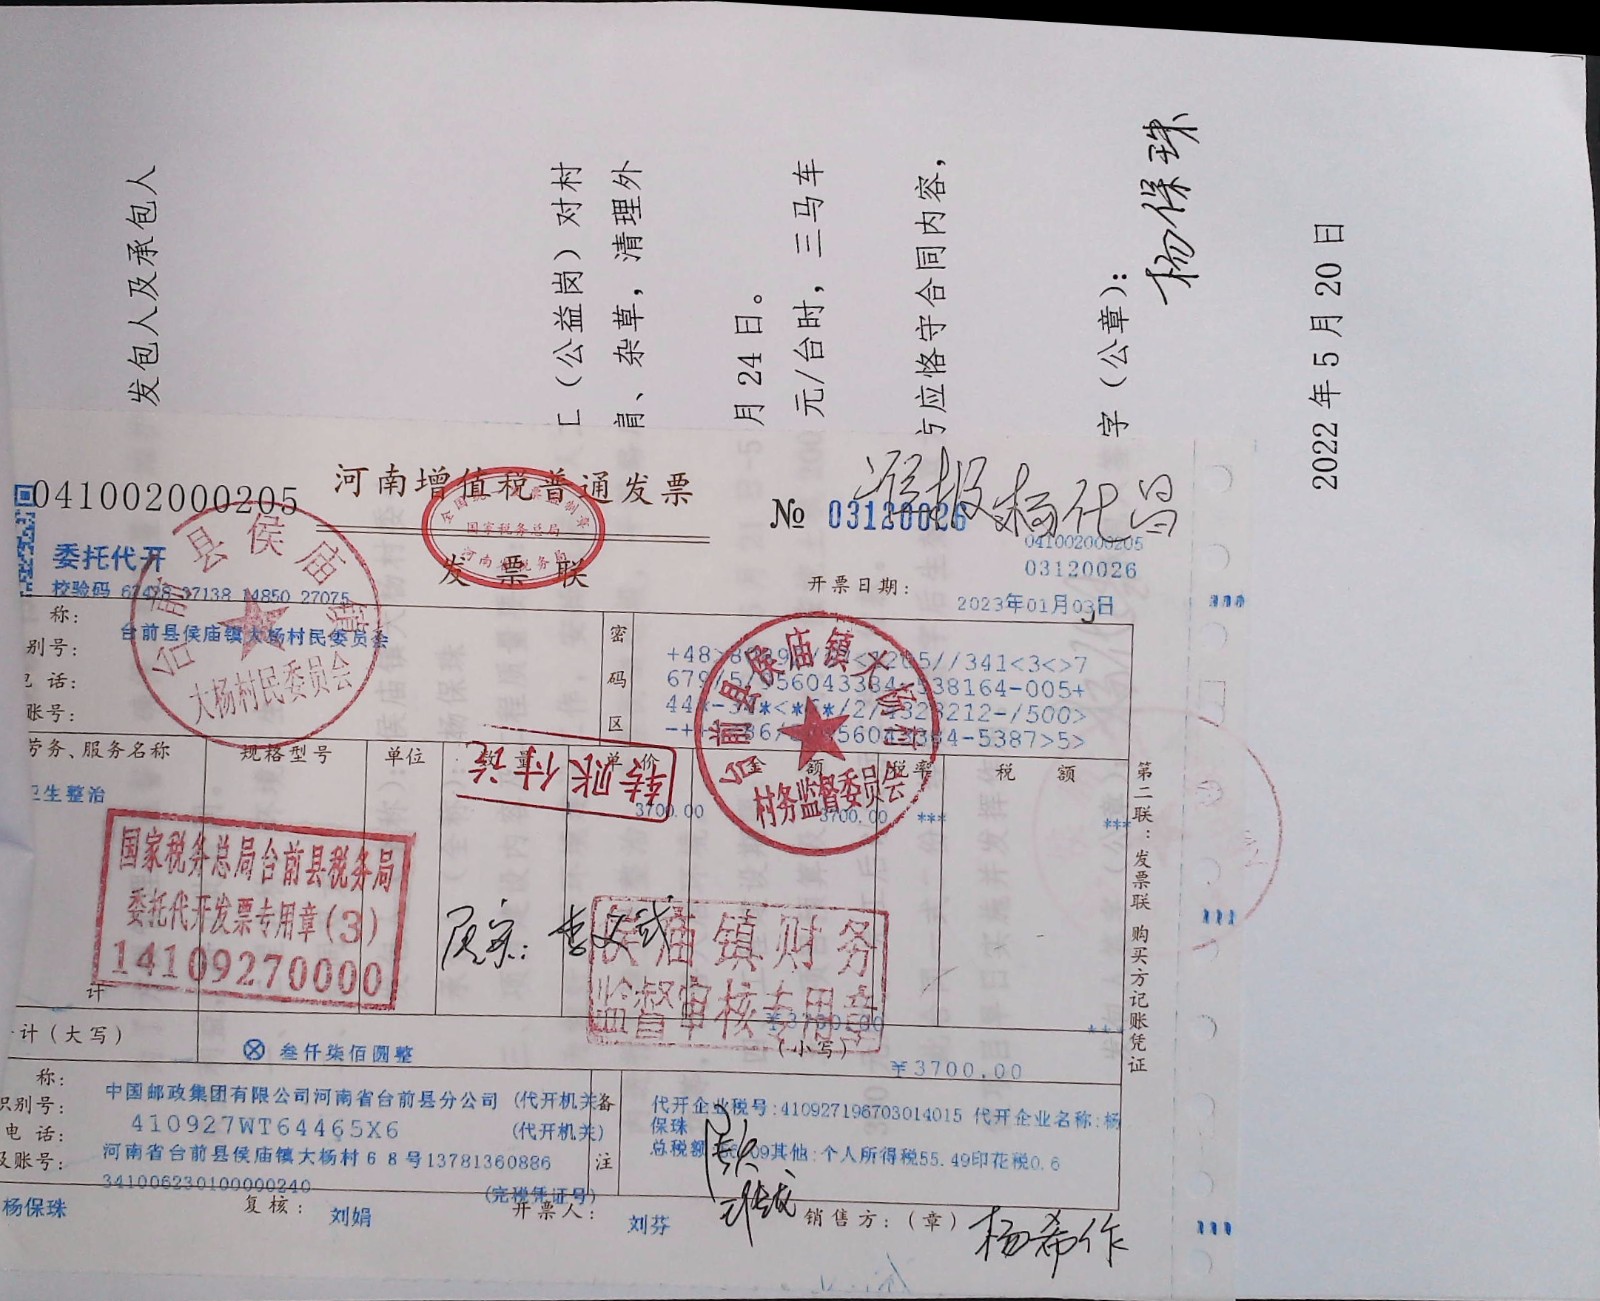 发包人及承包人
（公益岗）对村
、杂草，清理外
月24日。
元/台时，三马车
应恪守合同内容，
字（公章）：
杨保珠
2022年5月20日
041002000205
河南增值税普通发票
发票联
全国统一发票监制章
国家税务总局
河南省税务局
№ 03120026
准报 杨代昌
041002000205
03120026
委托代开
校验码 67428 37138 14850 27075
开票日期：
2023年01月03日
称：
台前县侯庙镇大杨村民委员会
别号：
话：
账号：
密码区
679/5/956043384-538164-005+
台前县侯庙镇
大杨村民委员会
台前县侯庙镇大杨村
村务监督委员会
劳务、服务名称
规格型号
单位
数量
单价
金额
税率
税额
转账付讫
卫生整治
3700.00
3700.00
***
***
国家税务总局台前县税务局
委托代开发票专用章(3)
14109270000
李文武
侯庙镇财务
监督审核专用章
计
¥3700.00
计（大写）
⊗ 叁仟柒佰圆整
（小写）
¥3700.00
第二联：发票联 购买方记账凭证
称：
中国邮政集团有限公司河南省台前县分公司 (代开机关)
识别号：
410927WT64465X6
(代开机关)
电 话：
河南省台前县侯庙镇大杨村68号13781360886
及账号：
341006230100000240
(完税凭证号)
备注
代开企业税号:410927196703014015 代开企业名称:杨
保珠
总税额
09其他:个人所得税55.49印花税0.6
杨保珠
复核：
刘娟
开票人：
刘芬
销售方：（章）
杨希作